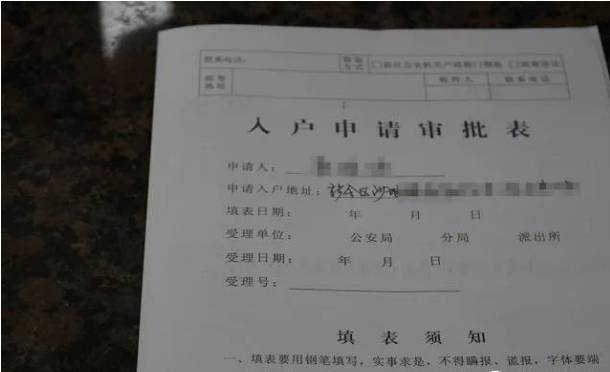 联系电话:
领取方式 □前往公安机关户籍窗口领取 □邮寄送达
邮寄地址 收件人 联系电话
入户申请审批表
申请人:
申请入户地址:
填表日期: 年 月 日
受理单位: 公安局 分局 派出所
受理日期: 年 月 日
受理号:
填表须知
一、填表要用钢笔填写,实事求是,不得瞒报、谎报,字体要端